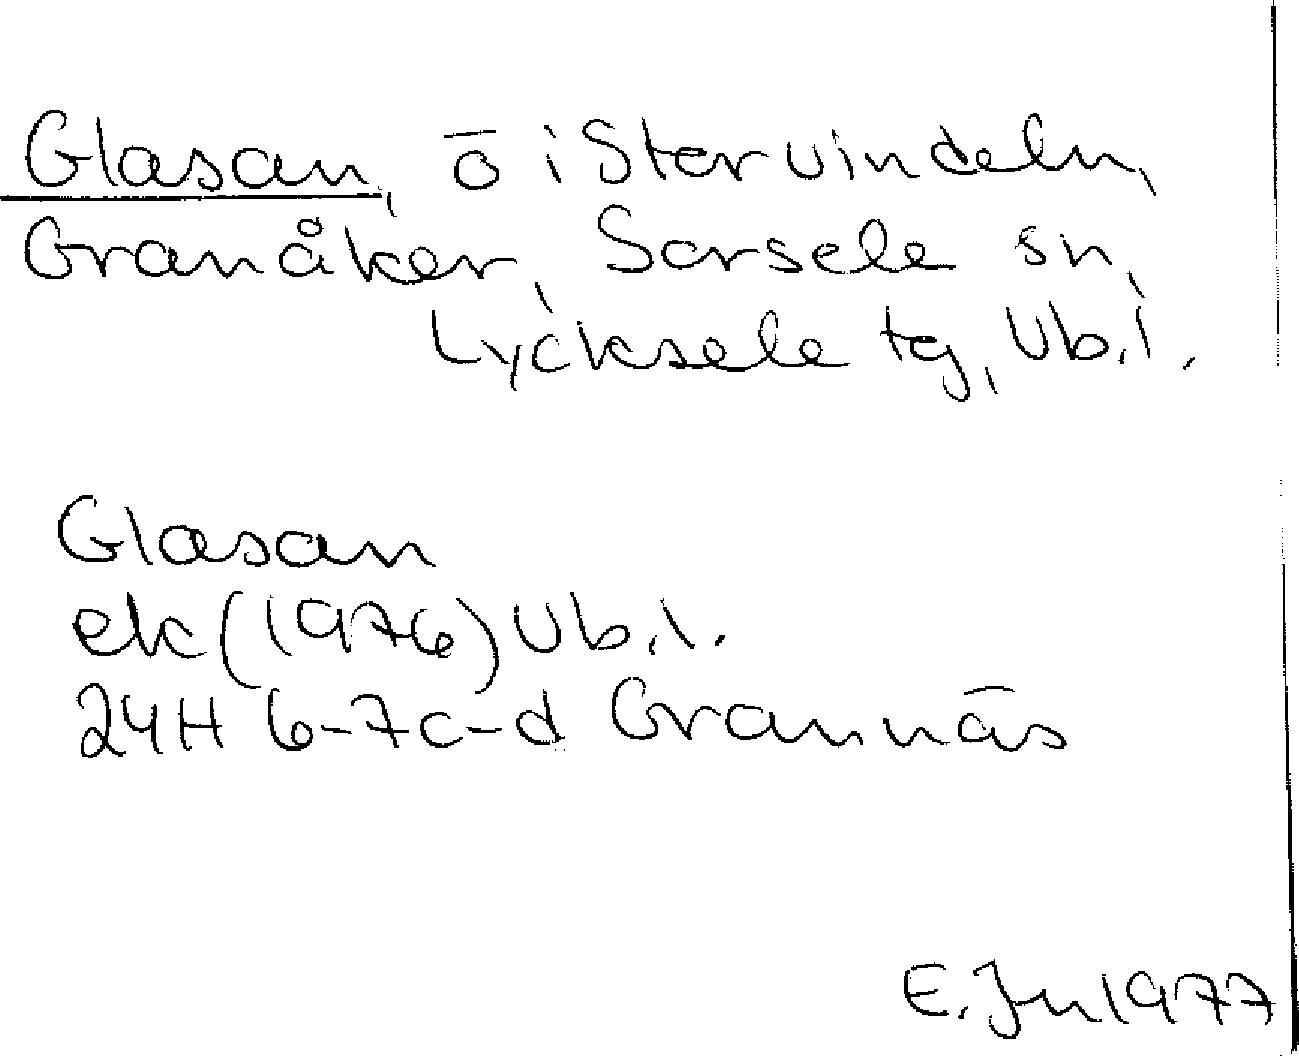 Glasan, ö i Storvindeln,
Granåker, Sorsele sn,
Lycksele tg, Vb.l.
Glasan
ek (1976) Vb.l.
24H 6-7c-d Grannäs
E. Ju 1977